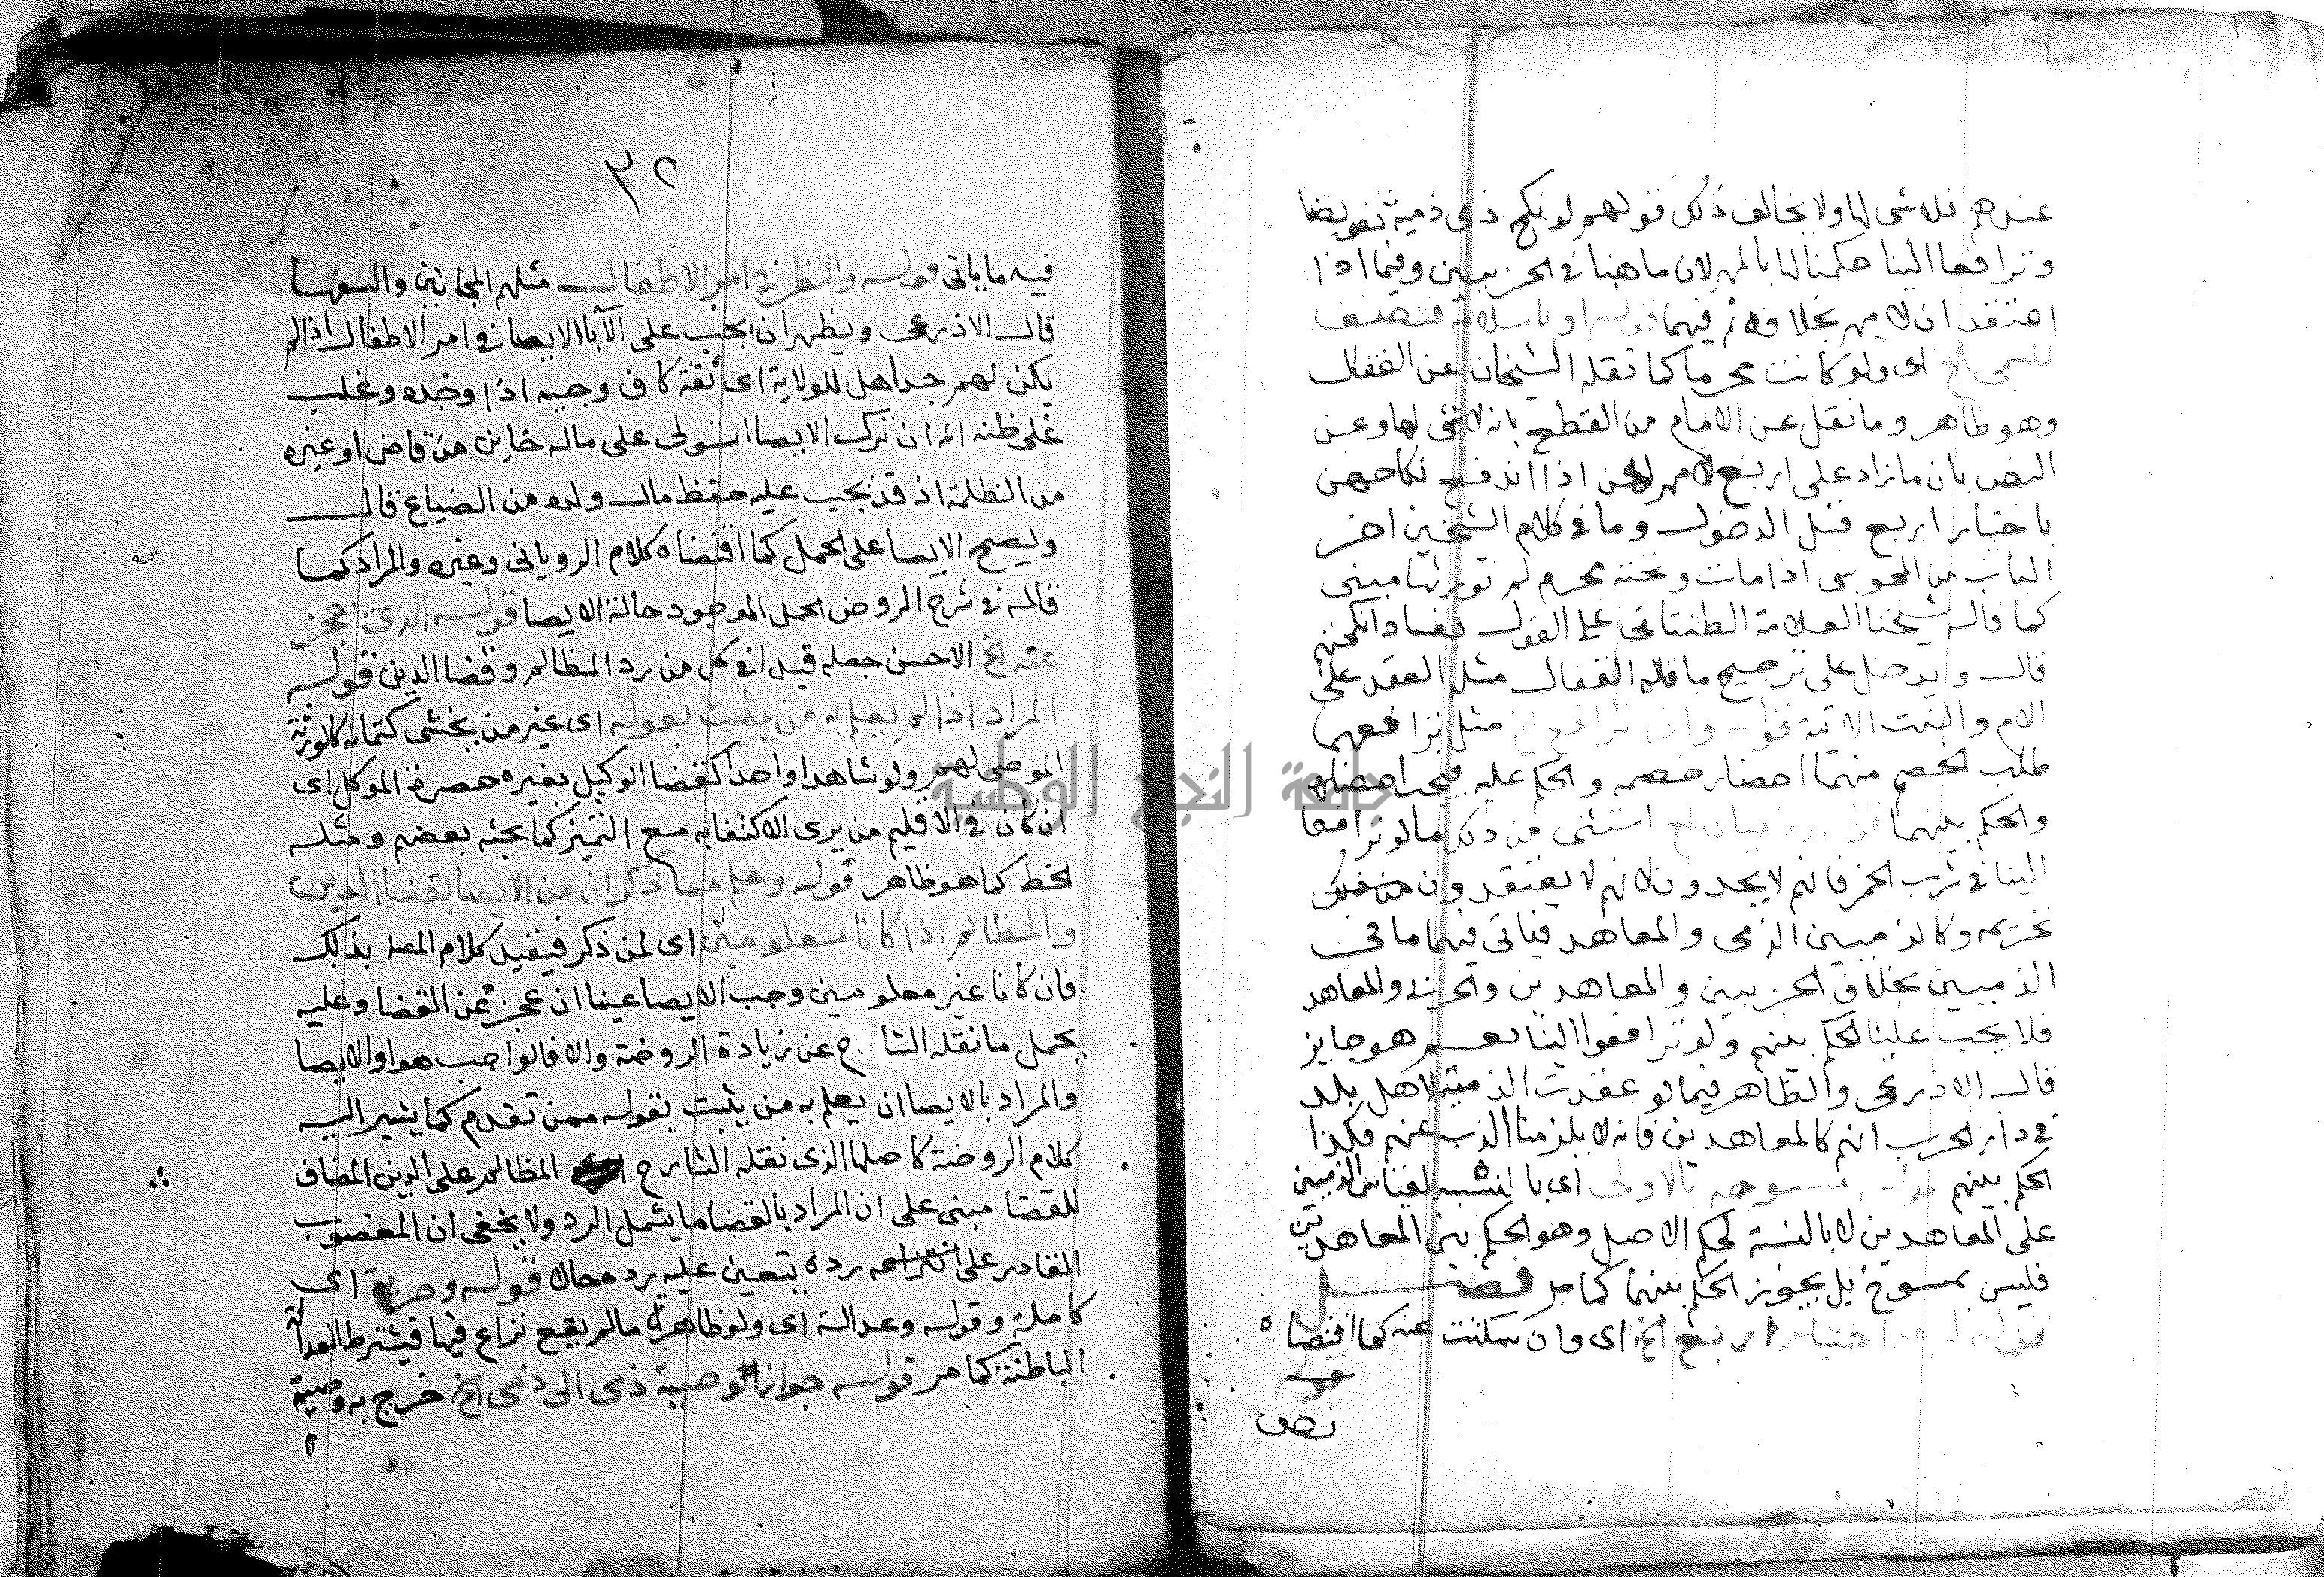 عندهم فلا شى لها ولا يخالف ذلك قولهم لو نكح ذمى ذمية تفويضا
وترافعا الينا حكمنا لها بالمهر لان ما هنا فى الحربيين وفيما اذا
اعتقد ان لا مهر بخلافه ثم فيهما قوله او باسلامه فنصف
مسمى الخ اى ولو كانت محرما كما نقله الشيخان عن القفال
وهو ظاهر وما نقل عن الامام من القطع بانه لا شى لها وعن
النص بان ما زاد على اربع لا مهر لهن اذا اندفع نكاحهن
باختيار اربع قبل الدخول وما فى كلام الشيخين اخر
الباب من المجوسى اذا مات وتحته محرم لم نورثها مبنى
كما قاله شيخنا العلامة الطنتاتى على القول بفساد انكحتهم
قال ويدخل على ترجيح ما قاله القفال مثل العقد على
الام والبنت الاتية قوله واذا ترافع الخ مثل ترافعهما
طلب الخصم منهما احضار خصمه والحكم عليه فيجب احضاره
والحكم بينهما استثنى من ذلك ما لو ترافعا
الينا فى شرب الخمر فانهم لا يحدون لانهم لا يعتقدون
تحريمه وكالذميين الذمى والمعاهد فياتى فيهما ما فى
الذميين بخلاف الحربيين والمعاهدين والحربى والمعاهد
فلا يجب علينا الحكم بينهم ولو ترافعوا الينا نعم هو جايز
قال الاذرعى والظاهر فيما لو عقدت الذمة لاهل بلد
فى دار الحرب انهم كالمعاهدين فانه لا يلزمنا الذب عنهم فكذا
الحكم بينهم بالاولى اى بالنسبة لقياس الذميين
على المعاهدين لا بالنسبة لحكم الاصل وهو الحكم بين المعاهدين
فليس بمنسوخ بل يجوز الحكم بينهما كما مر فصل
قوله اختيار اربع الخ اى وان سكتت عنه كما اقتضاه
نص
٣٢
فيه ما ياتى قوله والنظر فى امر الاطفال مثلهم المجانين والسفها
قال الاذرعى ويظهر انه يجب على الآبا الايصا فى امر الاطفال اذا لم
يكن لهم جد اهل للولاية اى ثقة كاف وجيه اذا وجده وغلب
على ظنه انه ان ترك الايصا استولى على ماله خاين من قاض او غيره
من الظلمة اذ قد يجب عليه حفظ مال ولده من الضياع قال
ويصح الايصا على الحمل كما اقتضاه كلام الرويانى وغيره والمراد كما
قاله فى شرح الروض الحمل الموجود حالة الايصا قوله الذى يعجز
عنه الخ الاحسن جعله قيدا فى كل من رد المظالم وقضا الدين قوله
المراد اذا لم يعلم به من يثبت بقوله اى غير من يخشى كتمانه كالورثة
الموصى لهم ولو شاهدا واحدا كقضا الوكيل بغيره حضرة الموكل اى
ان كان فى الاقليم من يرى الاكتفا به مع التميز كما بحثه بعضهم ومثله
الخط كما هو ظاهر قوله وعلم مما ذكر ان من الايصا بقضا الدين
والمظالم اذا كانا معلومين اى لمن ذكر فيقيد كلام المص بذلك
فان كانا غير معلومين وجب الايصا عينا ان عجز عن القضا وعليه
يحمل ما نقله الشارح عن زيادة الروضة والا فالواجب هو او الايصا
والمراد بالايصا ان يعلم به من يثبت بقوله ممن تقدم كما يشير اليه
كلام الروضة كاصلها الذى نقله الشارح المظالم على الدين المضاف
للقضا مبنى على ان المراد بالقضا ما يشمل الرد ولا يخفى ان المغصوب
القادر على انتزاعه رده يتعين عليه رده حالا قوله وحرية اى
كاملة وقوله وعدالة اى ولو ظاهرة ما لم يقع نزاع فيها فيشترط العدالة
الباطنة كما مر قوله جواز وصية ذمى الى ذمى الخ خرج به وصية